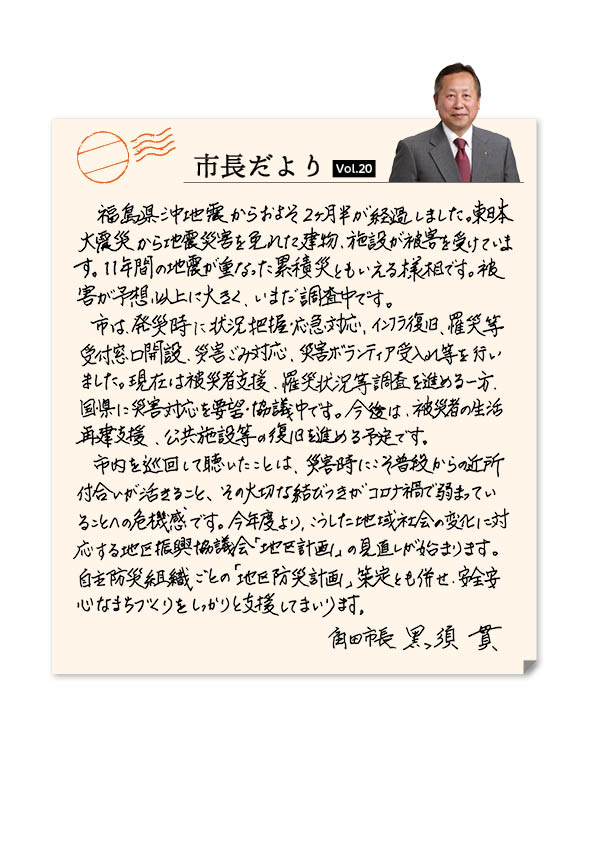 市長だより Vol.20
福島県沖地震からおよそ2ヶ月半が経過しました。東日本
大震災から地震災害を免れた建物、施設が被害を受けていま
す。11年間の地震が重なった累積災ともいえる様相です。被
害が予想以上に大きく、いまだ調査中です。
市は、発災時に状況把握・応急対応、インフラ復旧、罹災等
受付窓口開設、災害ごみ対応、災害ボランティア受入れ等を行い
ました。現在は被災者支援、罹災状況等調査を進める一方、
国県に災害対応を要望・協議中です。今後は、被災者の生活
再建支援、公共施設等の復旧を進める予定です。
市内を巡回して聴いたことは、災害時にこそ普段からの近所
付合いが活きること、その大切な結びつきがコロナ禍で弱まってい
ることへの危機感です。今年度より、こうした地域社会の変化に対
応する地区振興協議会「地区計画」の見直しが始まります。
自主防災組織ごとの「地区防災計画」策定とも併せ、安全安
心なまちづくりをしっかりと支援してまいります。
角田市長 黒須 貫